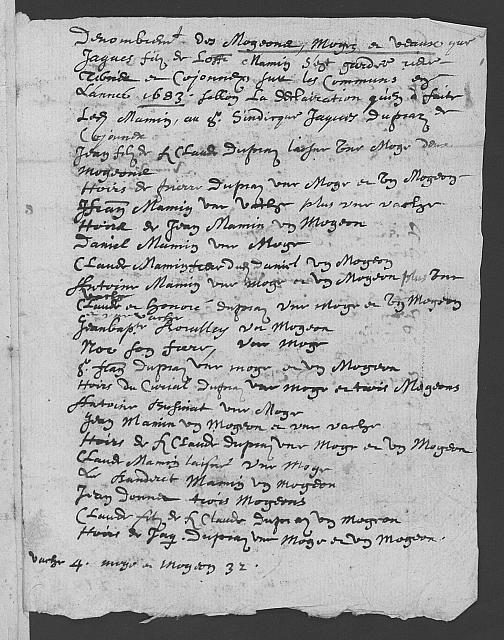 Denombrement des Mogeons, Moges et veaux que
Jaques filz de Mamin gardes
et Cojonnex sur les Communs en
Lannee 1683. sellon La declairation quen a faite
Led. Mamin, au Sr. Sindicque Jaques Dupraz de
Cojonnex
Jean filz de f. Claude Dupraz une Moge
mogeons
Hoirs de pierre Dupraz une Moge et un Mogeon
Jean Mamin une vache plus une vache
Hoirs de Jean Mamin un Mogeon
Daniel Mamin une Moge
Claude Mamin Daniel un Mogeon
Anthoine Mamin une moge et un Mogeon plus une
vache
Claude et Honoré dupraz une Moge et un Mogeon
et une vache
Jeanbapte un Mogeon
Noe son frere, une moge
Sr. dupraz une moge et un Mogeon
Hoirs du Dupraz une moge et trois Mogeons
Anthoine une Moge
Jean Mamin un Mogeon et une vache
Hoirs de f. Claude dupraz une Moge et un Mogeon
Claude Mamin laisné une Moge
Le Banderet Mamin un Mogeon
Jean Donnet trois Mogeons
Claude filz de f. Claude Dupraz un Mogeon
Hoirs de Jaq. Dupraz une Moge et un Mogeon.
vache 4. moge et Mogeon 32.